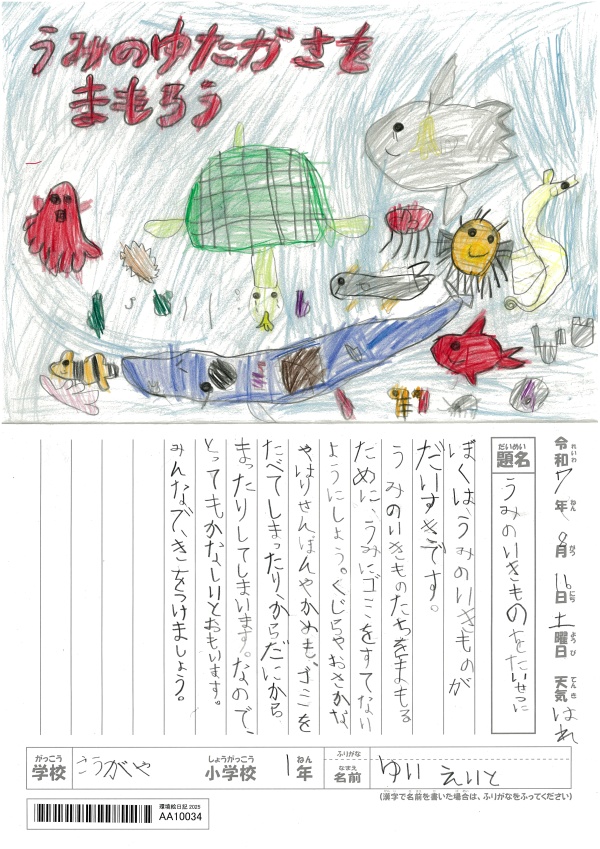 うみのゆたかさを
まもろう
令和7年8月16日土曜日 天気 はれ
れいわ ねん がつ にち ようび てんき
だいめい
題名 うみのいきものをたいせつに
ぼくは、うみのいきものが
だいすきです。
うみのいきものたちをまもる
ために、うみにゴミをすてない
ようにしよう。くじらやおさかな、
やはりせんぼんやかめも、ゴミを
たべてしまったり、からだにから
まったりしてしまいます。なので、
とってもかなしいとおもいます。
みんなで、きをつけましょう。
がっこう しょうがっこう ねん なまえ
学校 こうがや 小学校 1年 名前 ゆい えいと
ふりがな
(漢字で名前を書いた場合は、ふりがなをふってください)
環境絵日記 2025
AA10034